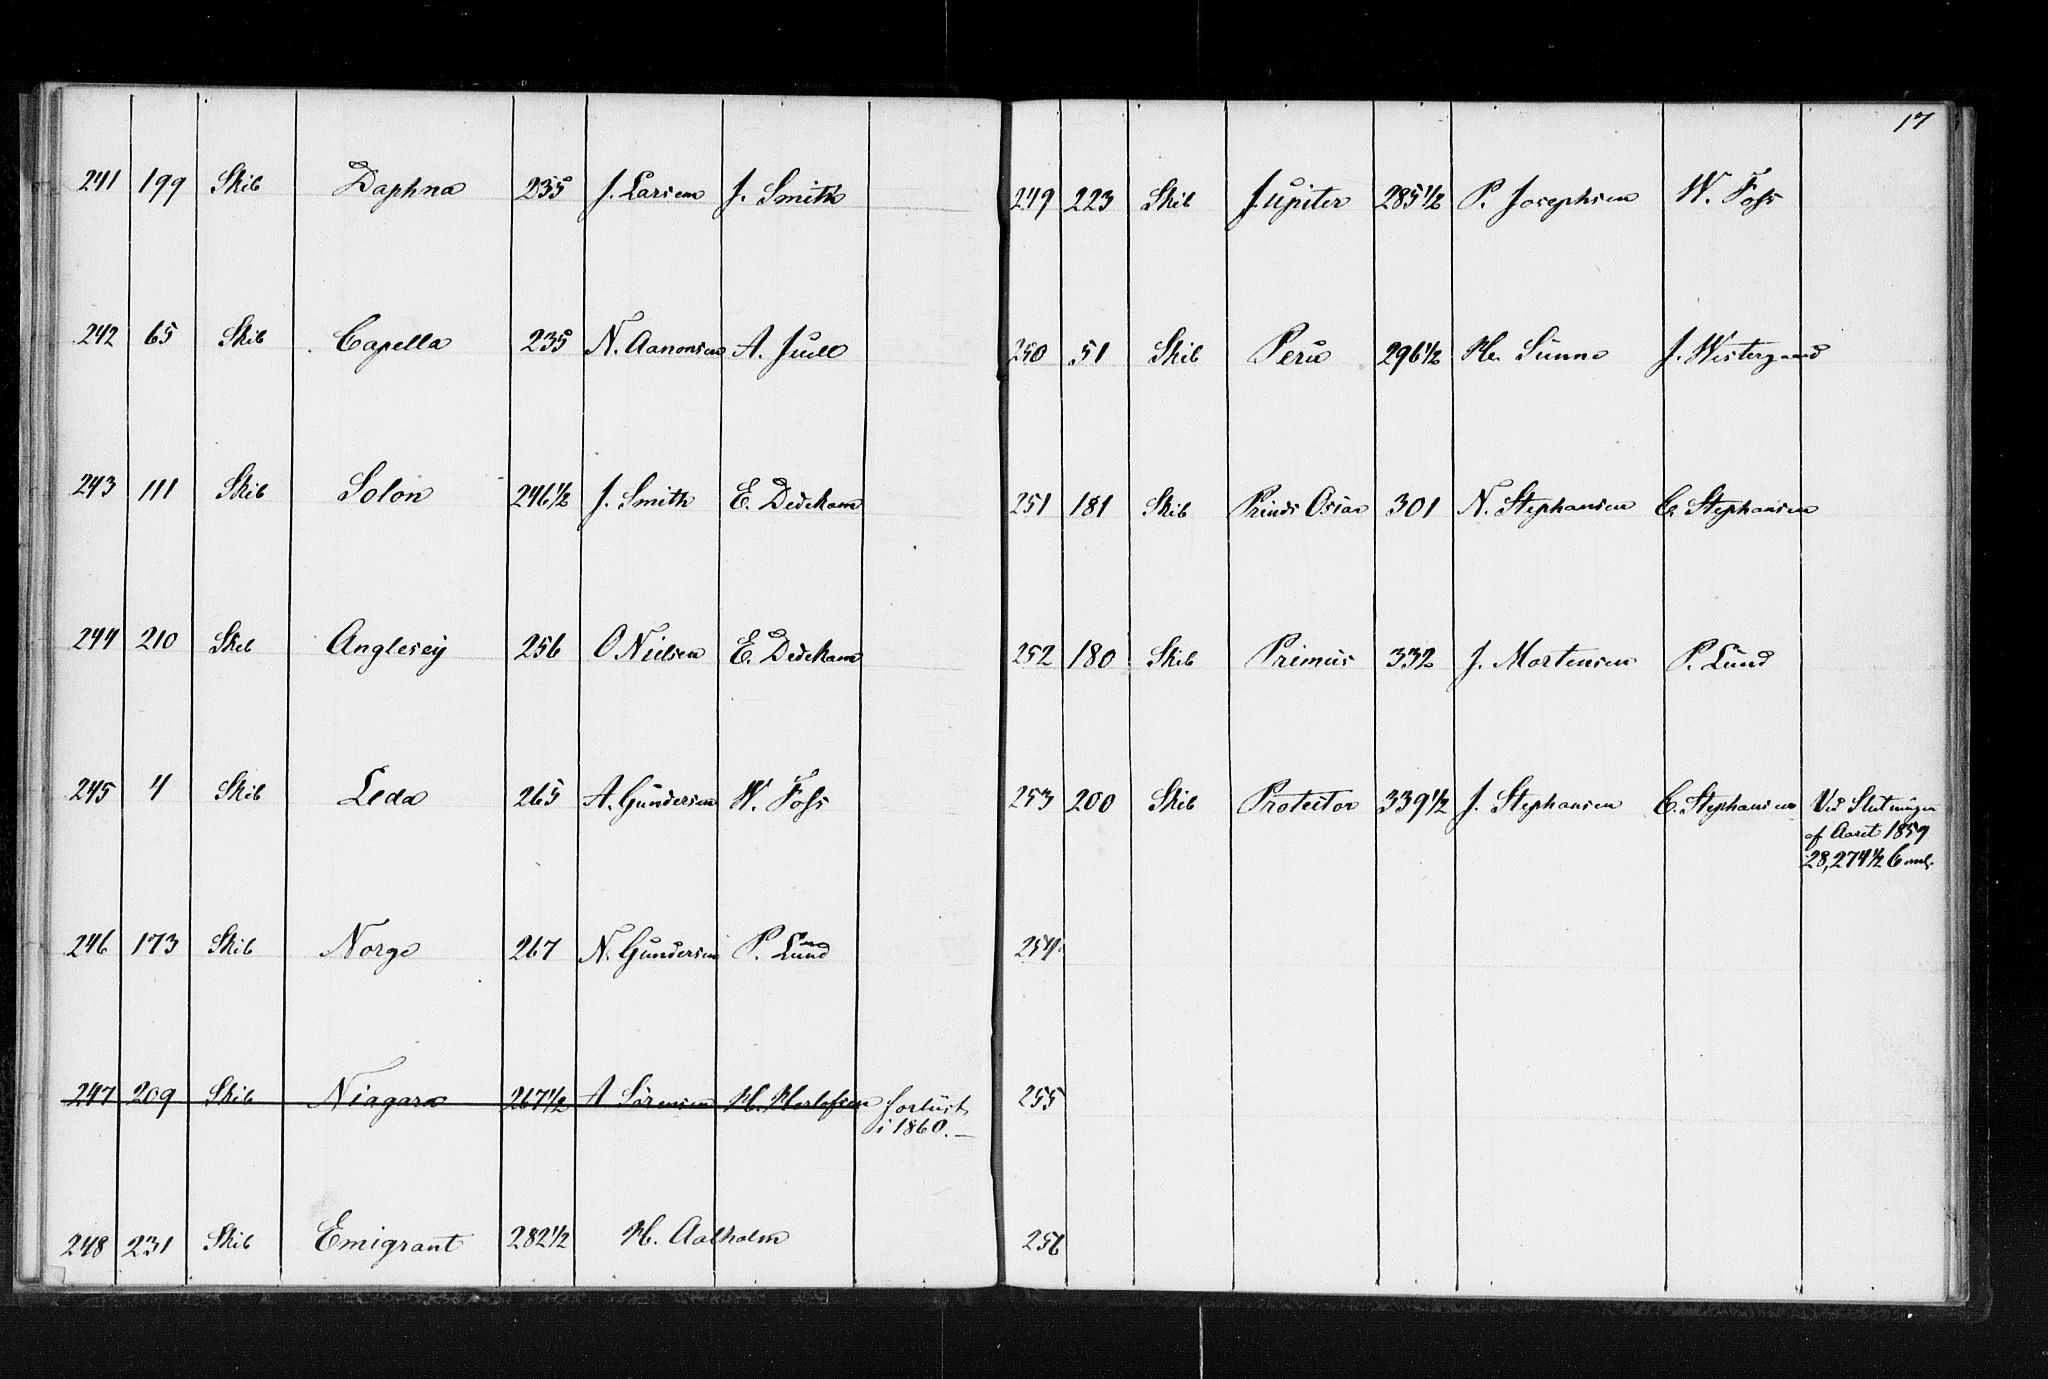 241 199 Skib Daphna 235 J. Larsen J. Smith
242 65 Skib Capella 235 N. Aanonsen A. Juell
243 111 Skib Solon 246 1/2 J. Smith E. Dedekam
244 210 Skib Anglesey 256 O Nielsen E. Dedekam
245 4 Skib Leda 265 A. Gundersen W. Foss
246 173 Skib Norge 267 N. Gundersen P. Lund
247 209 Skib Niagara 267 1/2 A Sörensen H. Herlofsen forlüst
i 1860.—
248 231 Skib Emigrant 282 1/2 H. Aalholm
17
249 223 Skib Jupiter 285 1/2 P. Josephsen W. Foss
250 51 Skib Peru 296 1/2 Sunne J. Westergaard
251 181 Skib Prinds Oscar 301 N. Stephansen C. Stephansen
252 180 Skib Primus 332 J. Mortensen P. Lund
253 200 Skib Protector 339 1/2 J. Stephansen C. Stephansen Ved Slutningen
af Aaret 1859
28,274 1/2
254
255
256